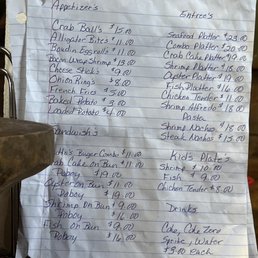 Appetizer's
Crab Ball's $15.00
Alligator Bites $11.00
Boudin Eggrolls $11.00
Bacon Wrap Shrimp $13.00
Cheese Sticks $9.00
Onion Rings $8.00
French Fries $5.00
Baked Potato $3.00
Loaded Potato $4.00
Sandwich's
Burger Combo $11.00
Crab Cake On Bun $11.00
Poboy $19.00
Oyster on Bun $11.00
Poboy $19.00
Shrimp On Bun $9.00
Poboy $16.00
Fish On Bun $9.00
Poboy $16.00
Entree's
Seafood Platter $23.00
Combo Platter $20.00
Crab Cake Platter $19.00
Shrimp Platter $18.00
Oyster Platter $19.00
Fish Platter $16.00
Chicken Tender $11.00
Shrimp Alfredo $18.00
Pasta
Shrimp Nachos $18.00
Steak Nachos $15.00
Kid's Plate's
Shrimp $10.00
Fish $9.00
Chicken Tender $8.00
Drinks
Coke, Coke Zero
Sprite, Water
$3.00 each